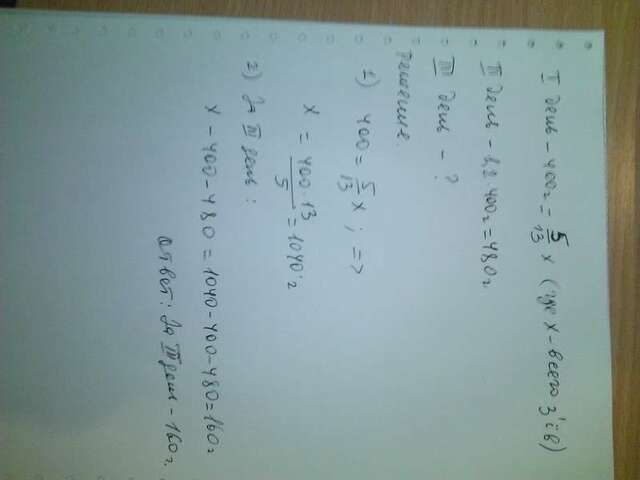 I день - 400г = 5/13 x (где x - всего з'їв)
II день - 1,2 · 400г = 480г.
III день - ?
Решение.
1) 400 = 5/13 x ; =>
x = 400·13/5 = 1040 г
2) За III день :
x - 400 - 480 = 1040 - 400 - 480 = 160 г
Ответ: За III день - 160 г.